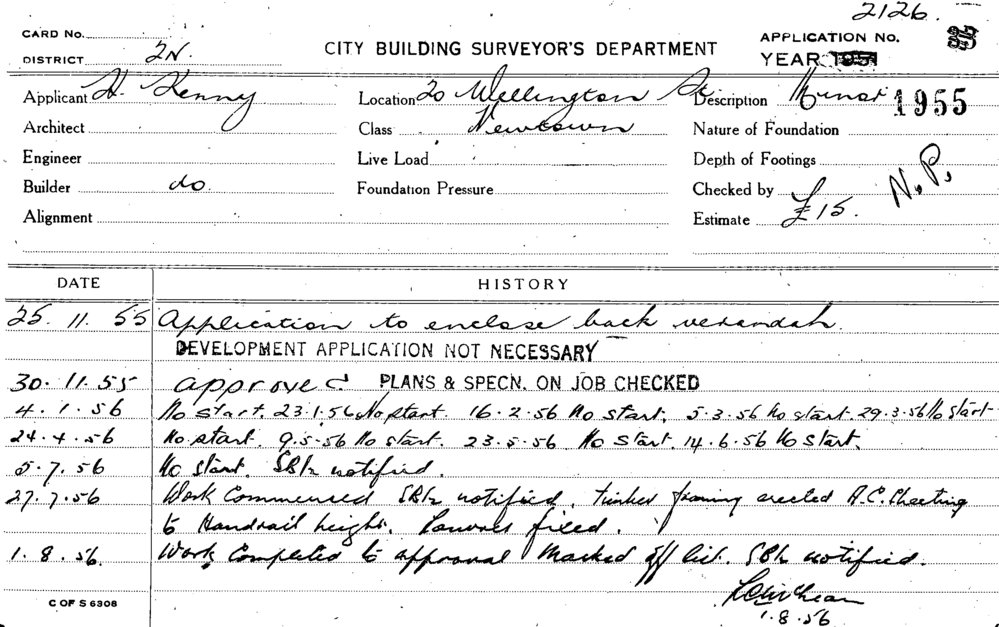 2126.
CARD No. APPLICATION No.
DISTRICT 2N. CITY BUILDING SURVEYOR'S DEPARTMENT YEAR 1951
Applicant H. Kenny Location 20 Wellington St Description Minor 1955
Architect Class Newtown Nature of Foundation
Engineer Live Load Depth of Footings
Builder do Foundation Pressure Checked by N.P.
Alignment Estimate £15.
DATE HISTORY
25. 11. 55 Application to enclose back verandah.
DEVELOPMENT APPLICATION NOT NECESSARY
30. 11. 55 approved PLANS & SPECN. ON JOB CHECKED
4. 1. 56 No start. 23.1.56 No start. 16.2.56 No start. 5.3.56 No start. 29.3.56 No start
24. 4. 56 No start. 9.5.56 No start. 23.5.56 No start. 14.6.56 No start.
5. 7. 56 No start. notified.
27. 7. 56 Work Commenced notified. timber framing erected A.C. Sheeting
to Handrail height. Louvres fixed.
1. 8. 56. Work Completed to approval Marked off list. notified.
1.8.56
C OF S 6308